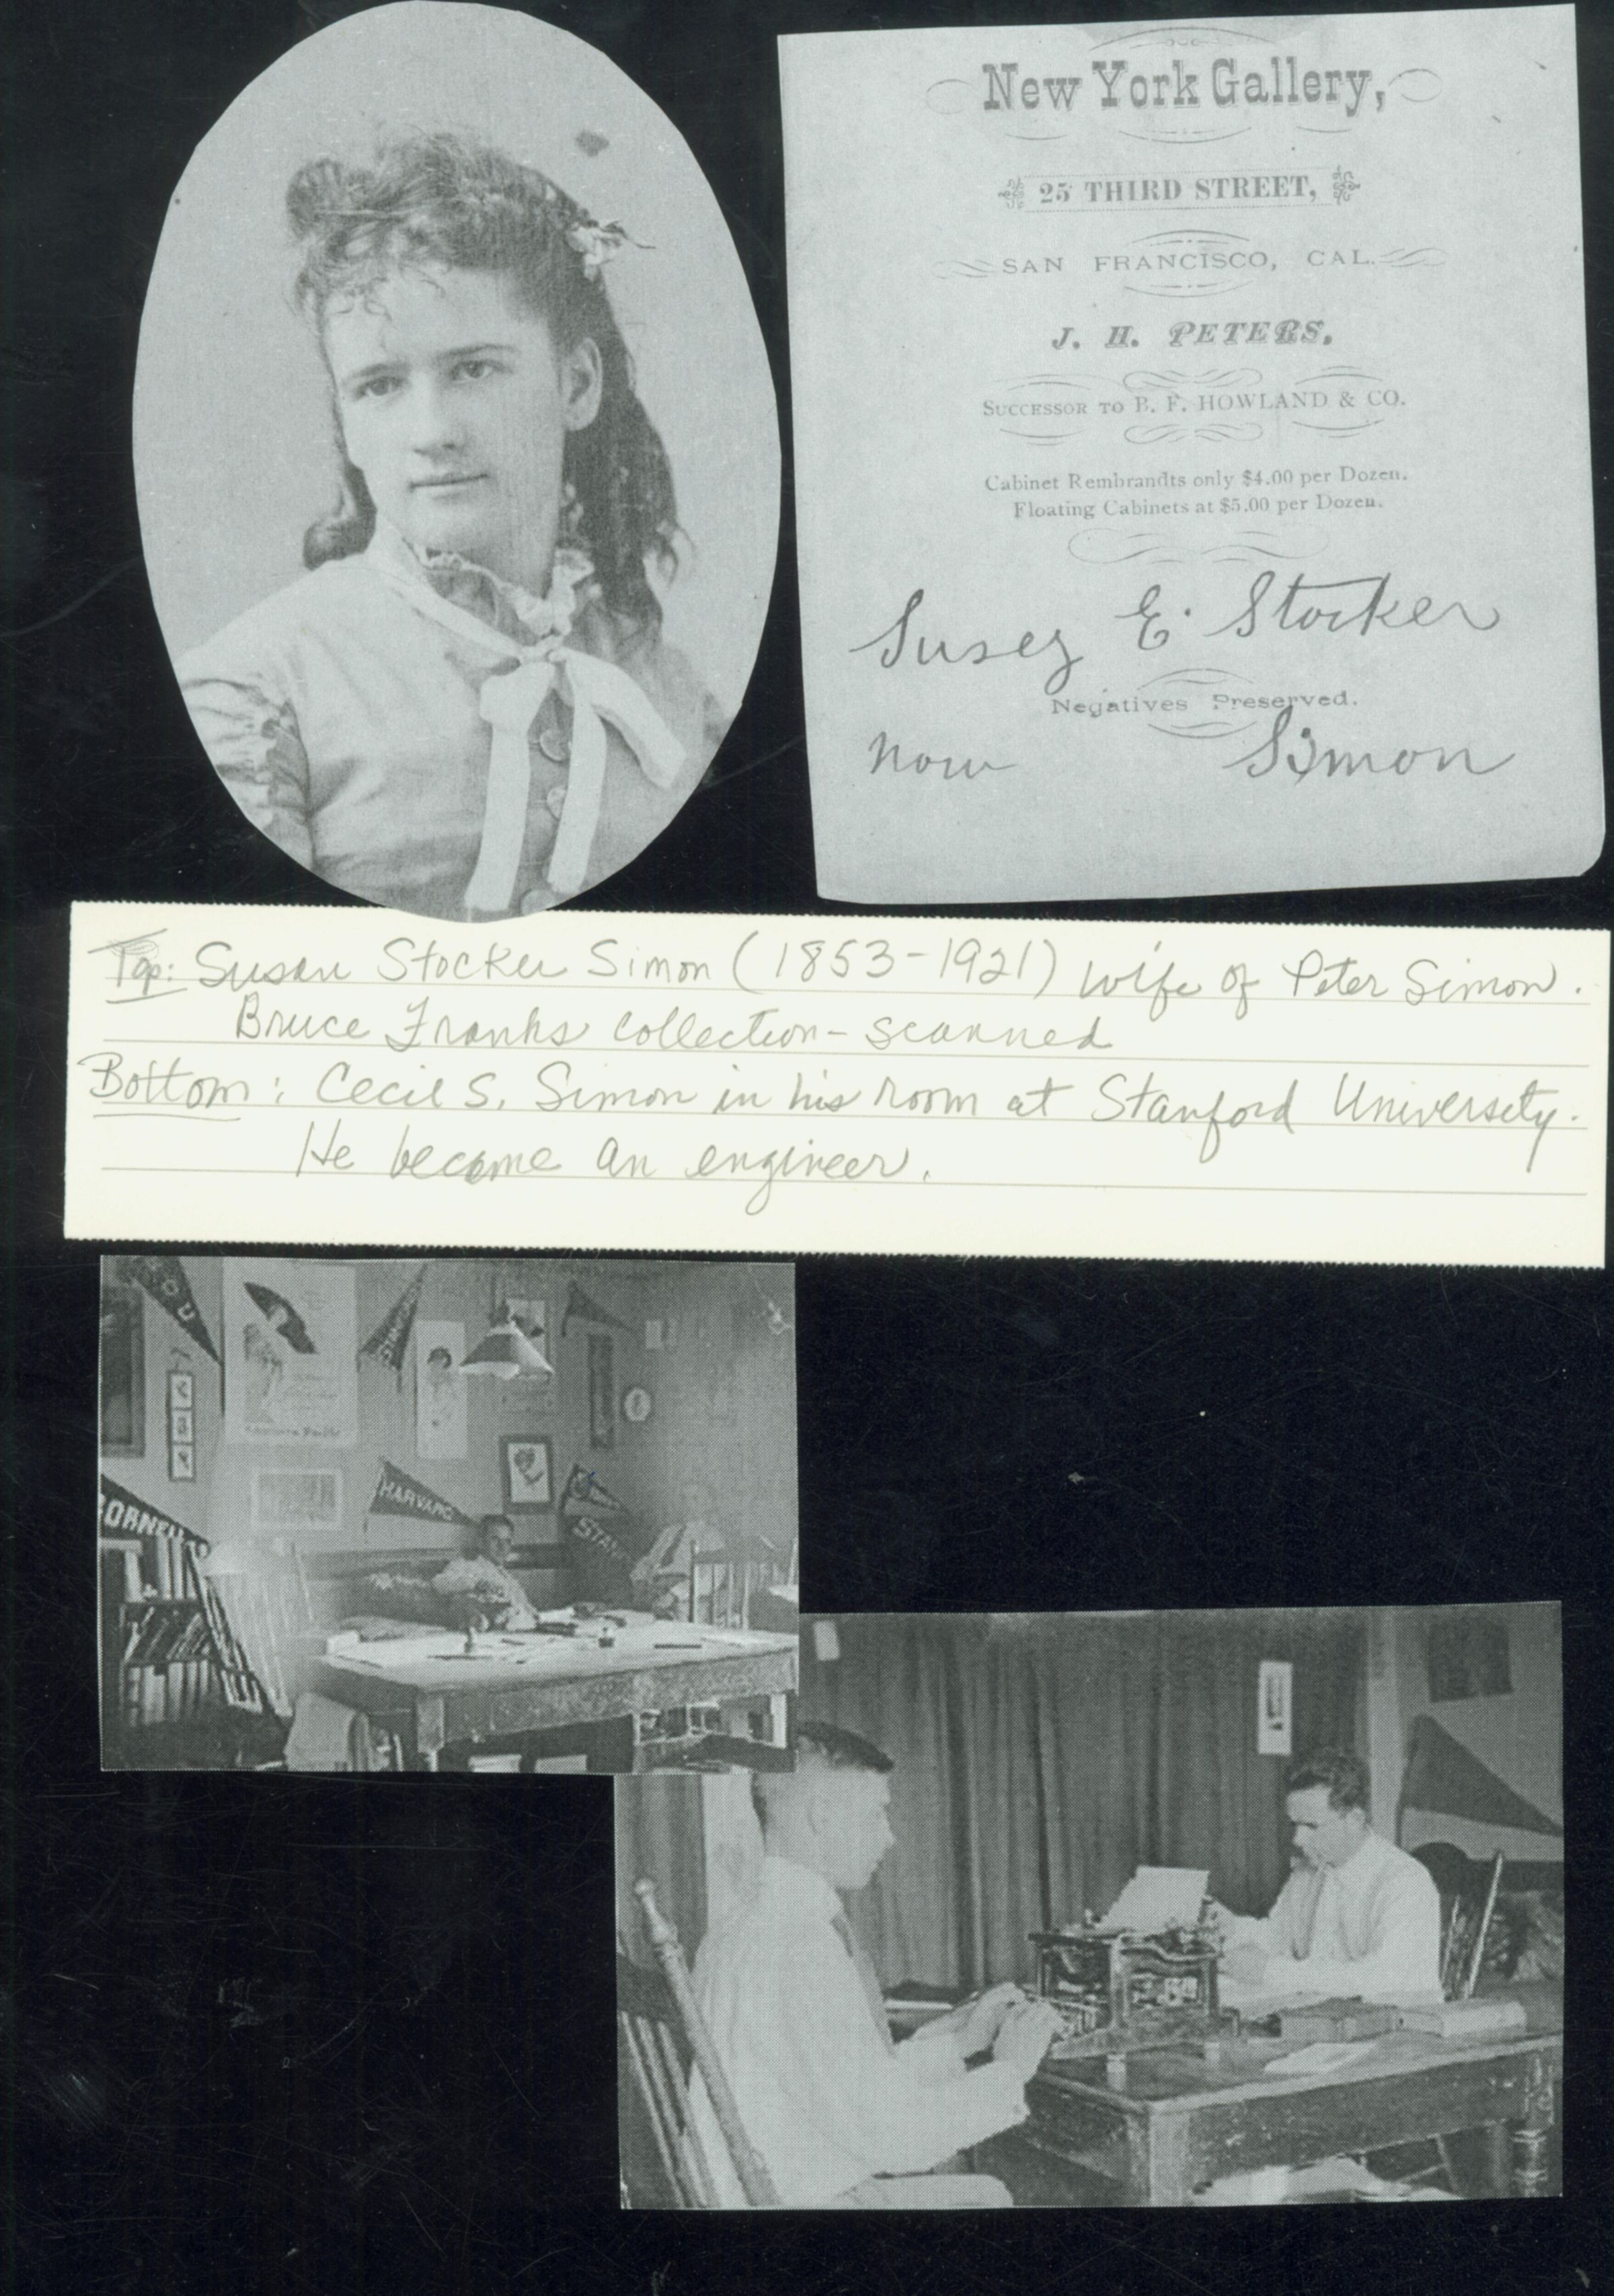 New York Gallery,
25 THIRD STREET,
SAN FRANCISCO, CAL.
J. H. PETERS,
SUCCESSOR TO B. F. HOWLAND & CO.
Cabinet Rembrandts only $4.00 per Dozen.
Floating Cabinets at $5.00 per Dozen.
Susey E. Stocker
Negatives Preserved.
now Simon
Top: Susan Stocker Simon (1853-1921) wife of Peter Simon.
Bruce Franks collection - scanned
Bottom: Cecil S. Simon in his room at Stanford University.
He become an engineer.
HARVARD
CORNELL
STAN